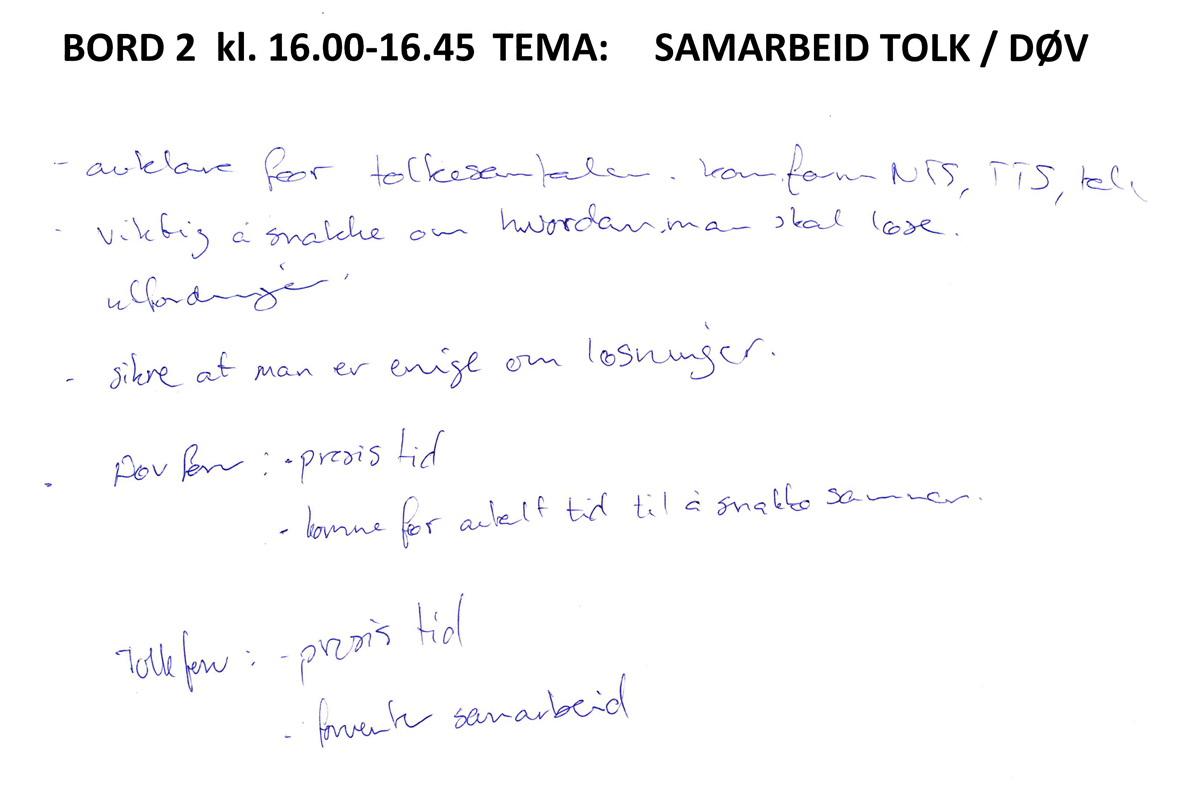 BORD 2 kl. 16.00-16.45 TEMA: SAMARBEID TOLK / DØV
- avklare før tolkesamtalen. NTS, TTS,
- viktig å snakke om hvordan man skal løse.
utfordringer.
- sikre at man er enige om løsninger.
Døv forv : - presis tid
- komme før avtalt tid til å snakke sammen.
Tolk forv : - presis tid
- forventer samarbeid